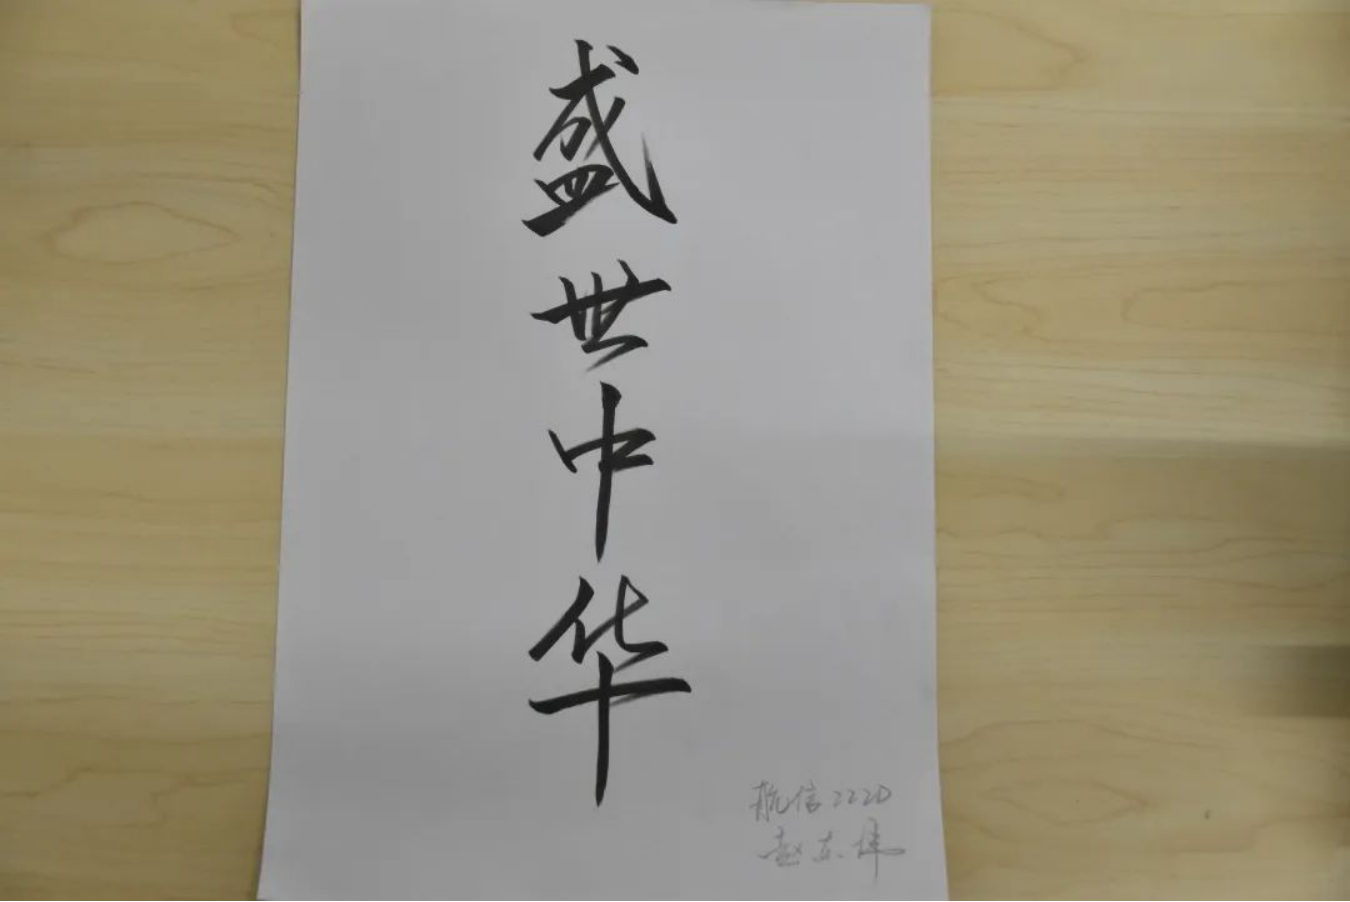 盛世中华
航信2220
赵志伟